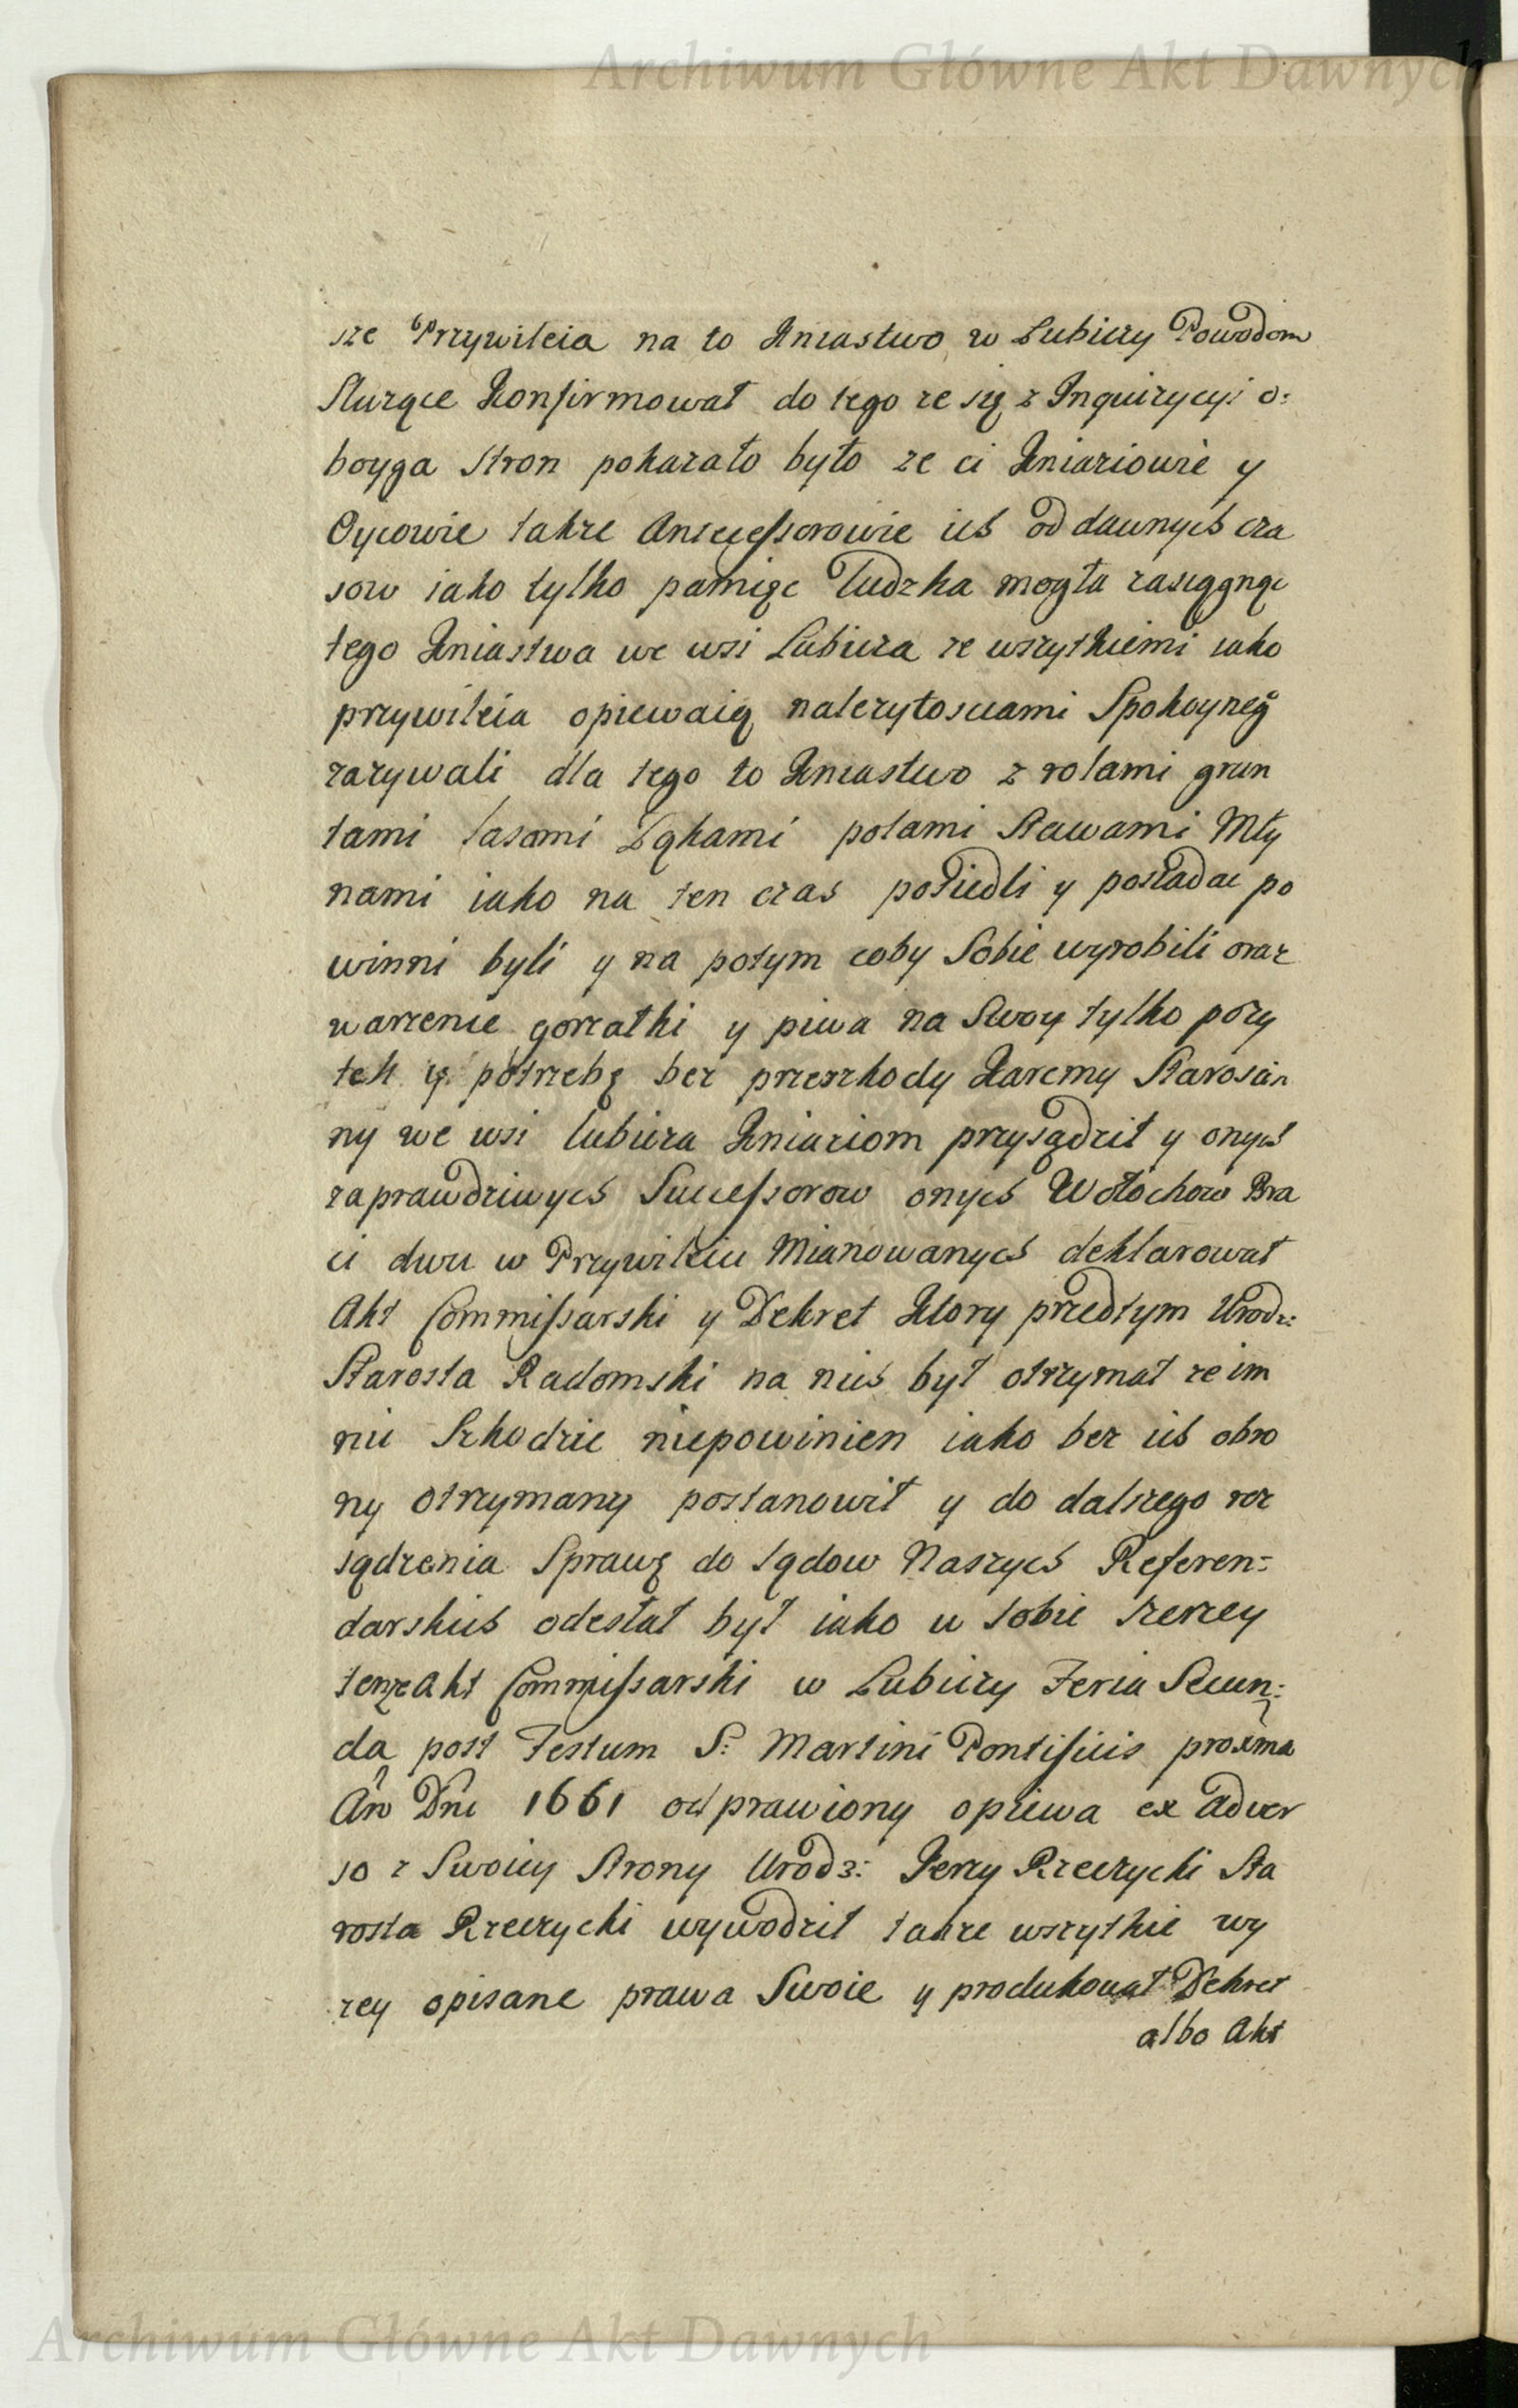 Archiwum Główne Akt Dawnych
sze Przywileia na to Kniastwo w Lubiczy Powodom
Służące Konfirmował do tego ze się z Inquizycyi o:
boyga Stron pokazało było ze ci Kniaziowie y
Oycowie takze Antecessorowie ich od dawnych cza
sow iako tylko pamięc ludzka mogła zasięgnąc
tego Kniastwa we wsi Lubicza ze wszytkiemi iako
przywileia opiewaią nalezytosciami Spokoyneg̊
zazywali dla tego to Kniastwo z rolami grun
tami lasami Łąkami polami Stawami Mły
nami iako na ten czas posiedli y posiadac po
winni byli y na potym coby Sobie wyrobili oraz
warzenie gorzałki y piwa na Swoy tylko pozy
tek y potrzebę bez przeszkody Karcmy Starościn
ny we wsi lubicza Kniaziom przysądził y onych
za prawdziwych Successorow onych Wołochow Bra
ci dwu w Przywileiu Mianowanych deklarował
Akt Commissarski y Dekret Ktory przedtym Urodz:
Starosta Radomski na nich był otrzymał ze im
nic Szkodzic niepowinien iako bez ich obro
ny otrzymany postanowił y do dalszego roz
sądzenia Sprawę do Sądow Naszych Referen:
darskich odesłał był iako w sobie szerzey
tenze Akt Commissarski w Lubiczy Feria Secun:
da post Festum S: Martini Pontificis proxima
Ão Dni 1661 odprawiony opiewa ex adver
so z Swoiey Strony Urodz: Jerzy Rzeczycki Sta
rosta Rzeczycki wywodził takze wszytkie wy
zey opisane prawa Swoie y produkował Dekret
albo Akt
Archiwum Główne Akt Dawnych